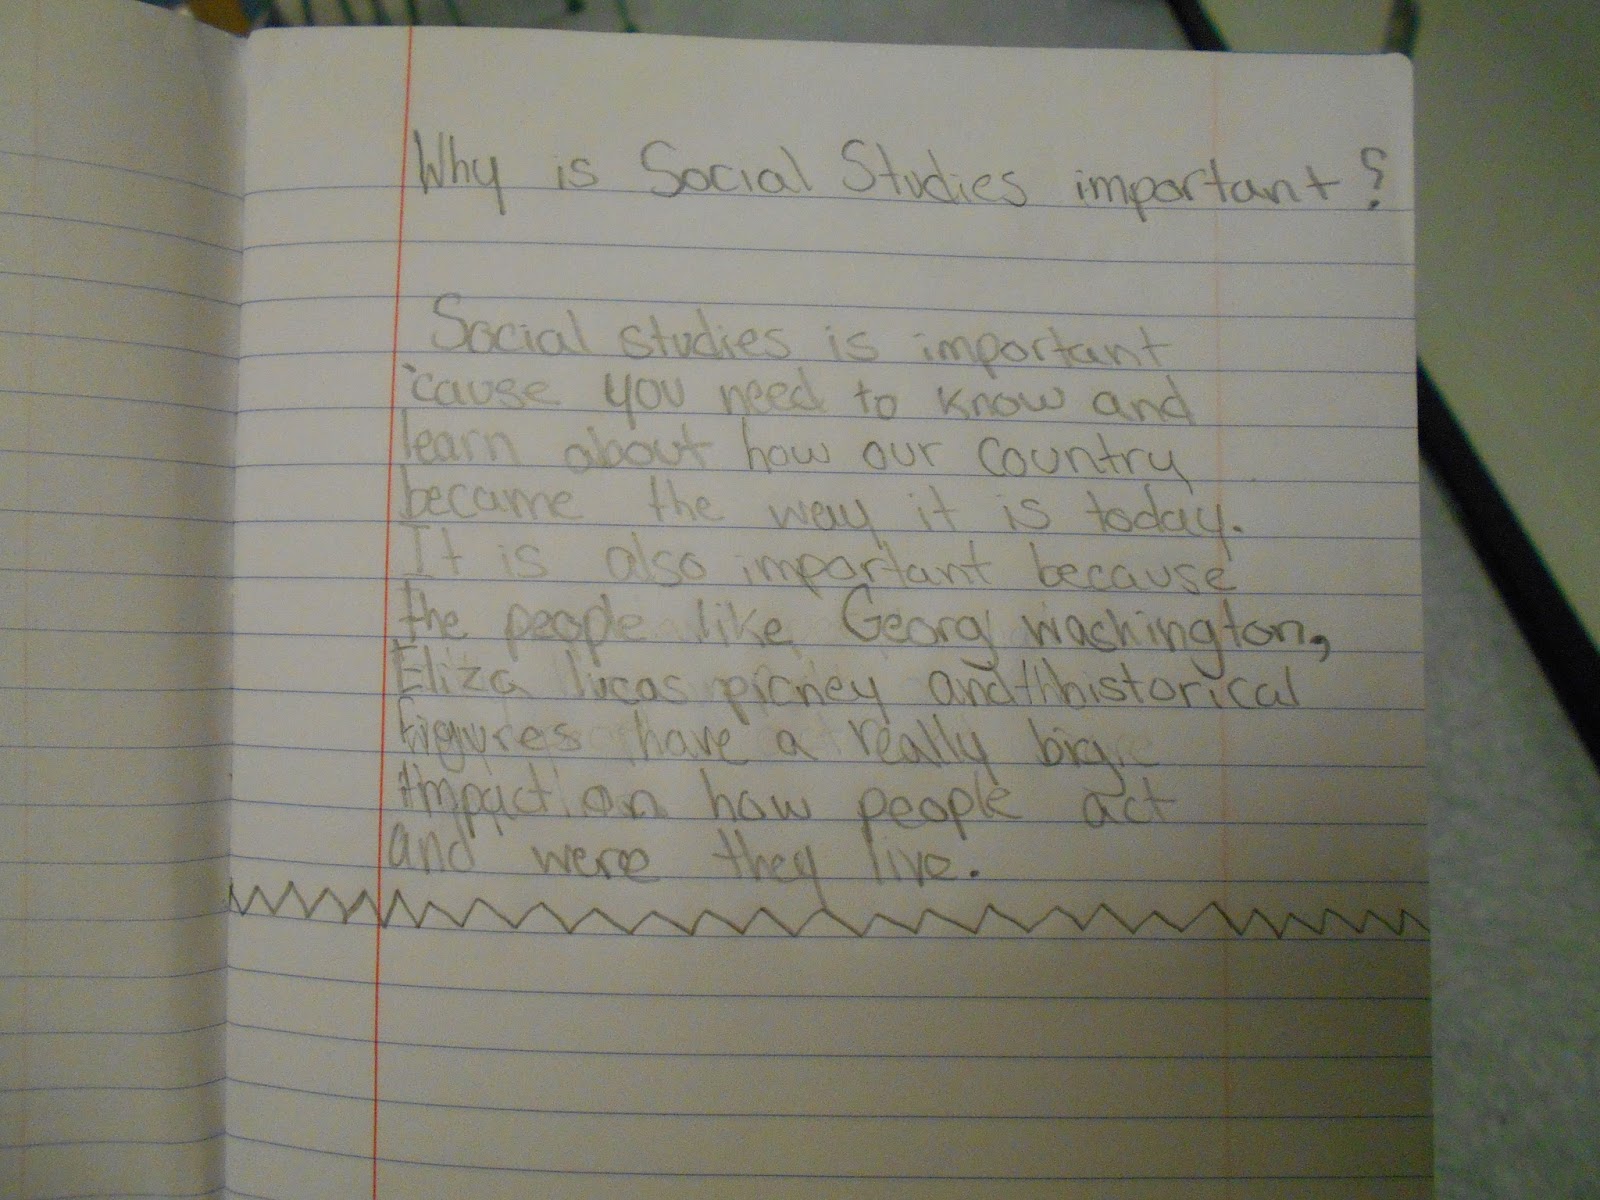 Why is Social Studies important?
Social studies is important
'cause you need to know and
learn about how our country
became the way it is today.
It is also important because
the people like Georg washington,
Eliza lucas picney and historical
figures have a really big
impact on how people act
and were they live.